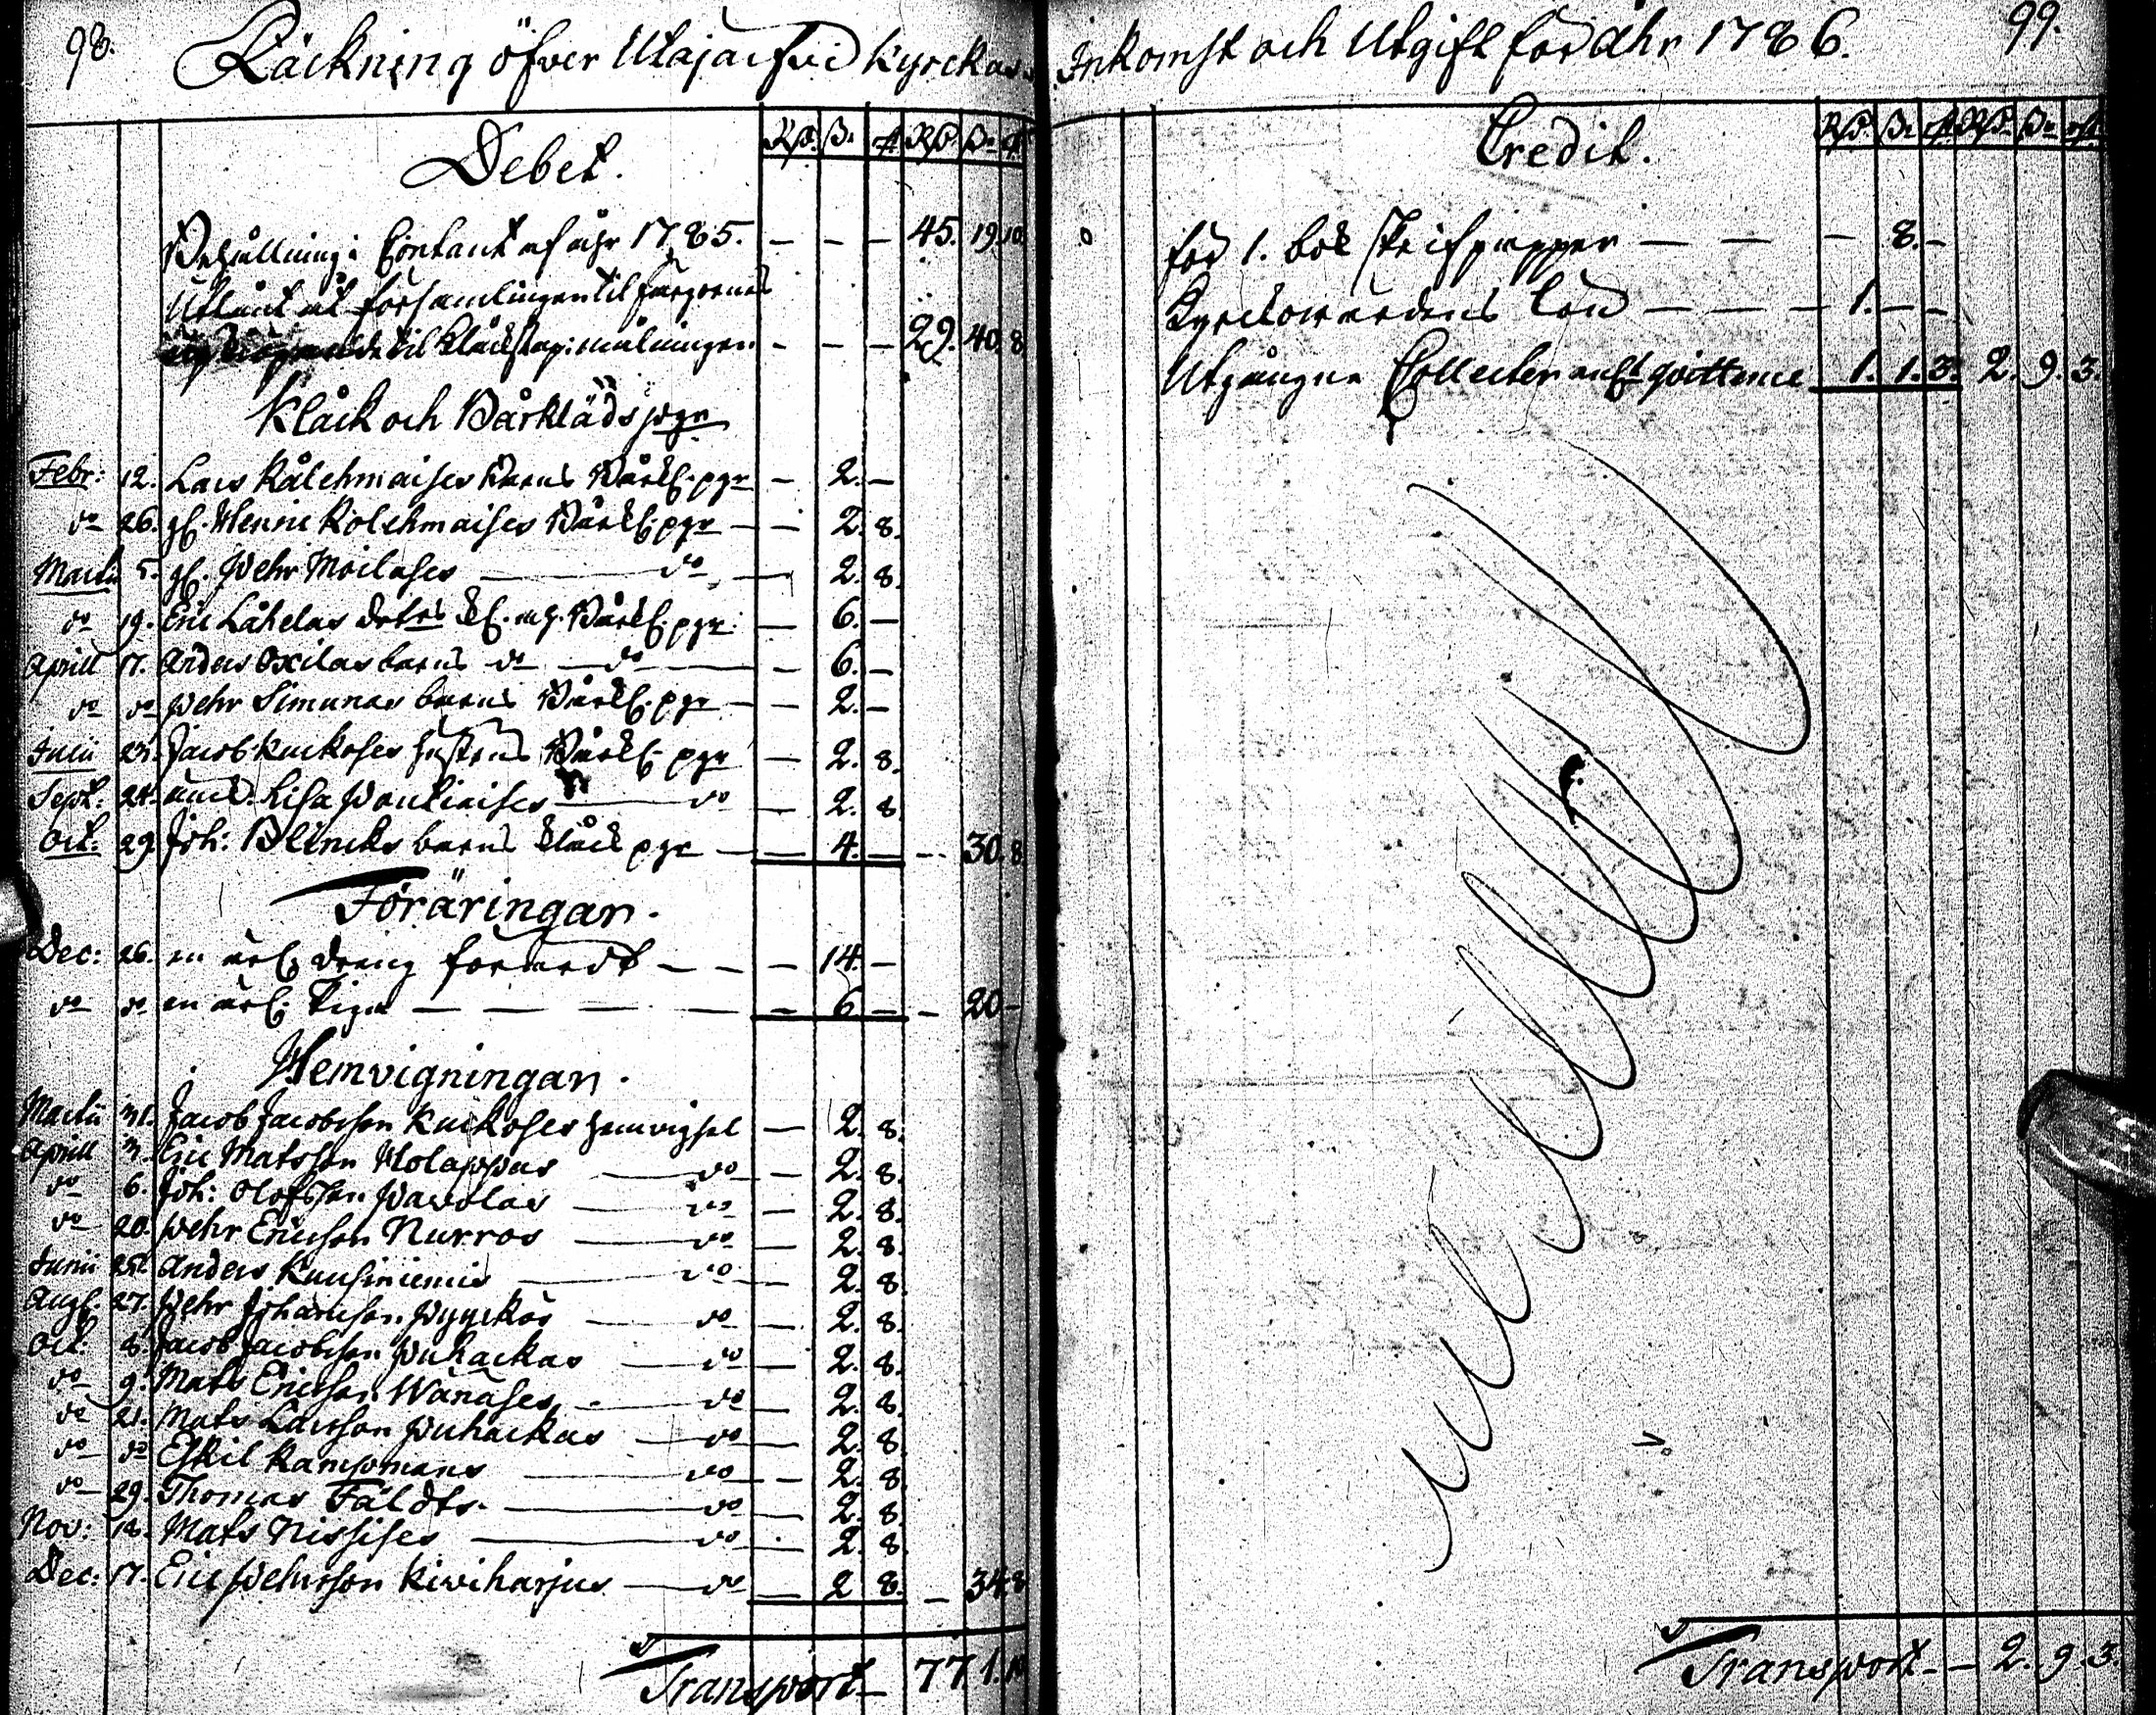 98.
Räckning öfver Utajärfvi Kyrckas
Debet.
Rd. ß. rst. Rd. ß. rst.
Behållning i Contant af åhr 1785. - - - 45. 19. 10.
Utlånt åt församlingen til färgornas
til Klåckstap: målningen - - - 29. 40. 8.
Klåck och Bårklädspgr
Febr: 12. Lars Kålehmaises barns Bårkl. pgr - 2. -
do 26. gl. Henric Kolehmaises Bårkl. pgr - 2. 8.
Martii 5. gl. Pehr Moilases do - 2. 8.
do 19. Eric Låhelas dotters kl. och Bårkl. pgr - 6. -
Aprill 17. Anders Oxilas barns do do - 6. -
do do Pehr Simunas barns Bårkl. pgr - 2. -
Julii 23. Jacob Kuckoses hustrus Bårkl. pgr - 2. 8.
Sept. 24. Lisa Pentinises do - 2. 8.
Oct. 29. Joh: Blincks barns klåck pgr - 4. - - 30. 8.
Föräringar.
Dec: 26. en ärl. dräng förärdt - - - 14. -
do do en ärl. Piga - - - 6. - - 20 -
Hemvigningar.
Martii 31. Jacob Jacobsson Kuckoses hemvigsel - 2. 8.
Aprill 3. Eric Matsson Holappas do - 2. 8.
do 6. Joh: Olofsson Pavolas do - 2. 8.
do 20. Pehr Ericsson Nurros do - 2. 8.
Junii 25. Anders Kuusiniemis do - 2. 8.
Aug. 27. Pehr Johansson Pyyckös do - 2. 8.
Oct: 8. Jacob Jacobsson Puhackas do - 2. 8.
do 9. Mats Ericsson Wänäses do - 2. 8.
do 21. Mats Larsson Puhackas do - 2. 8.
do do Eskil Kampmans do - 2. 8.
do 29. Thomas Fäldts do - 2. 8.
Nov: 12. Mats Nissises do - 2. 8.
Dec: 17. Eric Pehrsson Kiviharjus do - 2 8. - 34. 8.
Transport - 77 1. 10
Inkomst och Utgift för åhr 1786.
99.
Credit.
Rd. ß. rst. Rd. ß. rst.
för 1. bok skrifpapper - - - 8. -
Kyrckowärdens lön - - - 1. - -
Utgångne Collecter enligt qvittence 1. 1. 3. 2. 9. 3.
Transport - - 2. 9. 3.